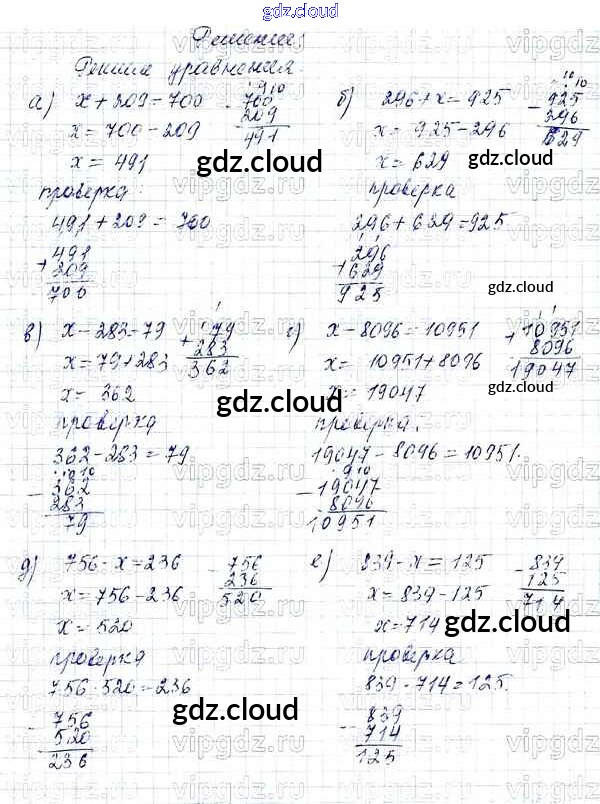 gdz.cloud
Решение
Решим уравнения.
а) x + 209 = 700
x = 700 - 209
x = 491
проверка:
491 + 209 = 700
491
+ 209
700
9 10
- 700
209
491
б) 296 + x = 925
x = 925 - 296
x = 629
проверка
296 + 629 = 925
1 1
296
+ 629
925
10 10
- 925
296
629
gdz.cloud
gdz.cloud
в) x - 283 = 79
x = 79 + 283
x = 362
проверка
362 - 283 = 79
10
- 362
283
79
1 1
79
+ 283
362
г) x - 8096 = 10951
x = 10951 + 8096
x = 19047
проверка.
19047 - 8096 = 10951.
9 10
- 19047
8096
10951
1 1
+ 10951
8096
19047
gdz.cloud
gdz.cloud
д) 756 - x = 236
x = 756 - 236
x = 520
проверка
756 - 520 = 236
- 756
520
236
- 756
236
520
е) 839 - x = 125
x = 839 - 125
x = 714
проверка
839 - 714 = 125.
- 839
714
125
- 839
125
714
gdz.cloud
gdz.cloud
gdz.cloud
vipgdz.ru